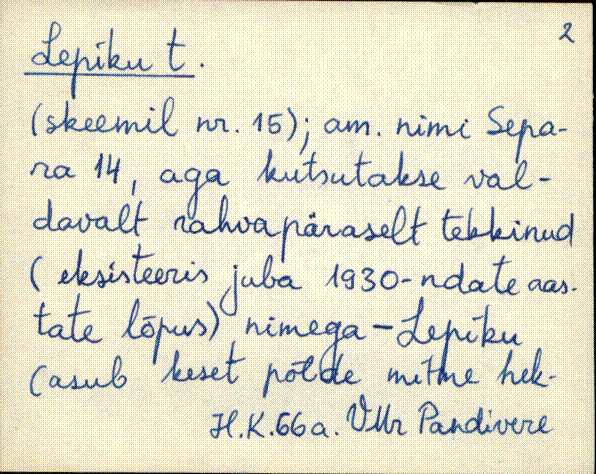 2
Lepiku t.
(skeemil nr. 15); am. nimi Sepa-
ra 14, aga kutsutakse val-
davalt rahvapäraselt tekkinud
(eksisteeris juba 1930-ndate aas-
tate lõpus) nimega - Lepiku
(asub keset põlde mitme hek-
H.K.66a. VMr Pandivere